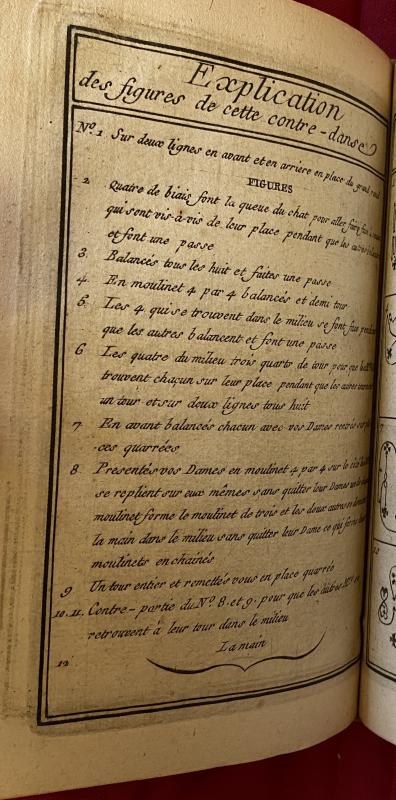 Explication
des figures de cette contre-danse
N.º 1 Sur deux lignes en avant et en arriere en place du grand rond
FIGURES
2 Quatre de biais font la queue du chat pour aller faire face a
qui sont vis-à-vis de leur place pendant que les autres
et font une passe
3 Balancés tous les huit et faites une passe
4 En moulinet 4 par 4 balancés et demi tour
5 Les 4 qui se trouvent dans le milieu se font face pendant
que les autres balancent et font une passe
6 Les quatre du milieu trois quarts de tour pour que
trouvent chacun sur leur place pendant que les autres
un tour et sur deux lignes tous huit
7 En avant balancés chacun avec vos Dames
ces quarrées
8 Presentés vos Dames en moulinet 4 par 4 sur le
se replient sur eux mêmes sans quitter leur Dames
moulinet forme le moulinet de trois et les deux autres
la main dans le milieu sans quitter leur Dame ce qui forme
moulinets enchainés
9 Un tour entier et remettés vous en place quarré
10. 11. Contre-partie du N.º 8. et 9. pour que les
retrouvent à leur tour dans le milieu
12 La main